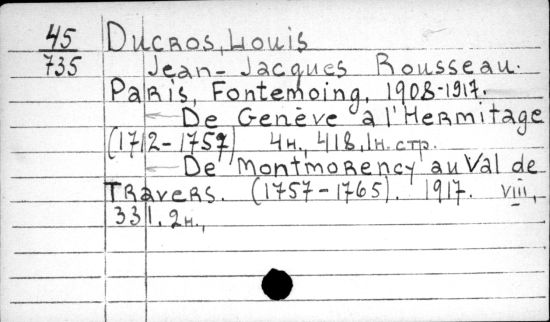 45 Ducros, Louis
735 Jean-Jacques Rousseau.
Paris, Fontemoing, 1908-1917.
— De Genève a l'Hermitage
(1712-1757) 4н., 418, 1н. стр.
— De Montmorency au Val de
Travers. (1757-1765). 1917. VIII,
331. 2н.,